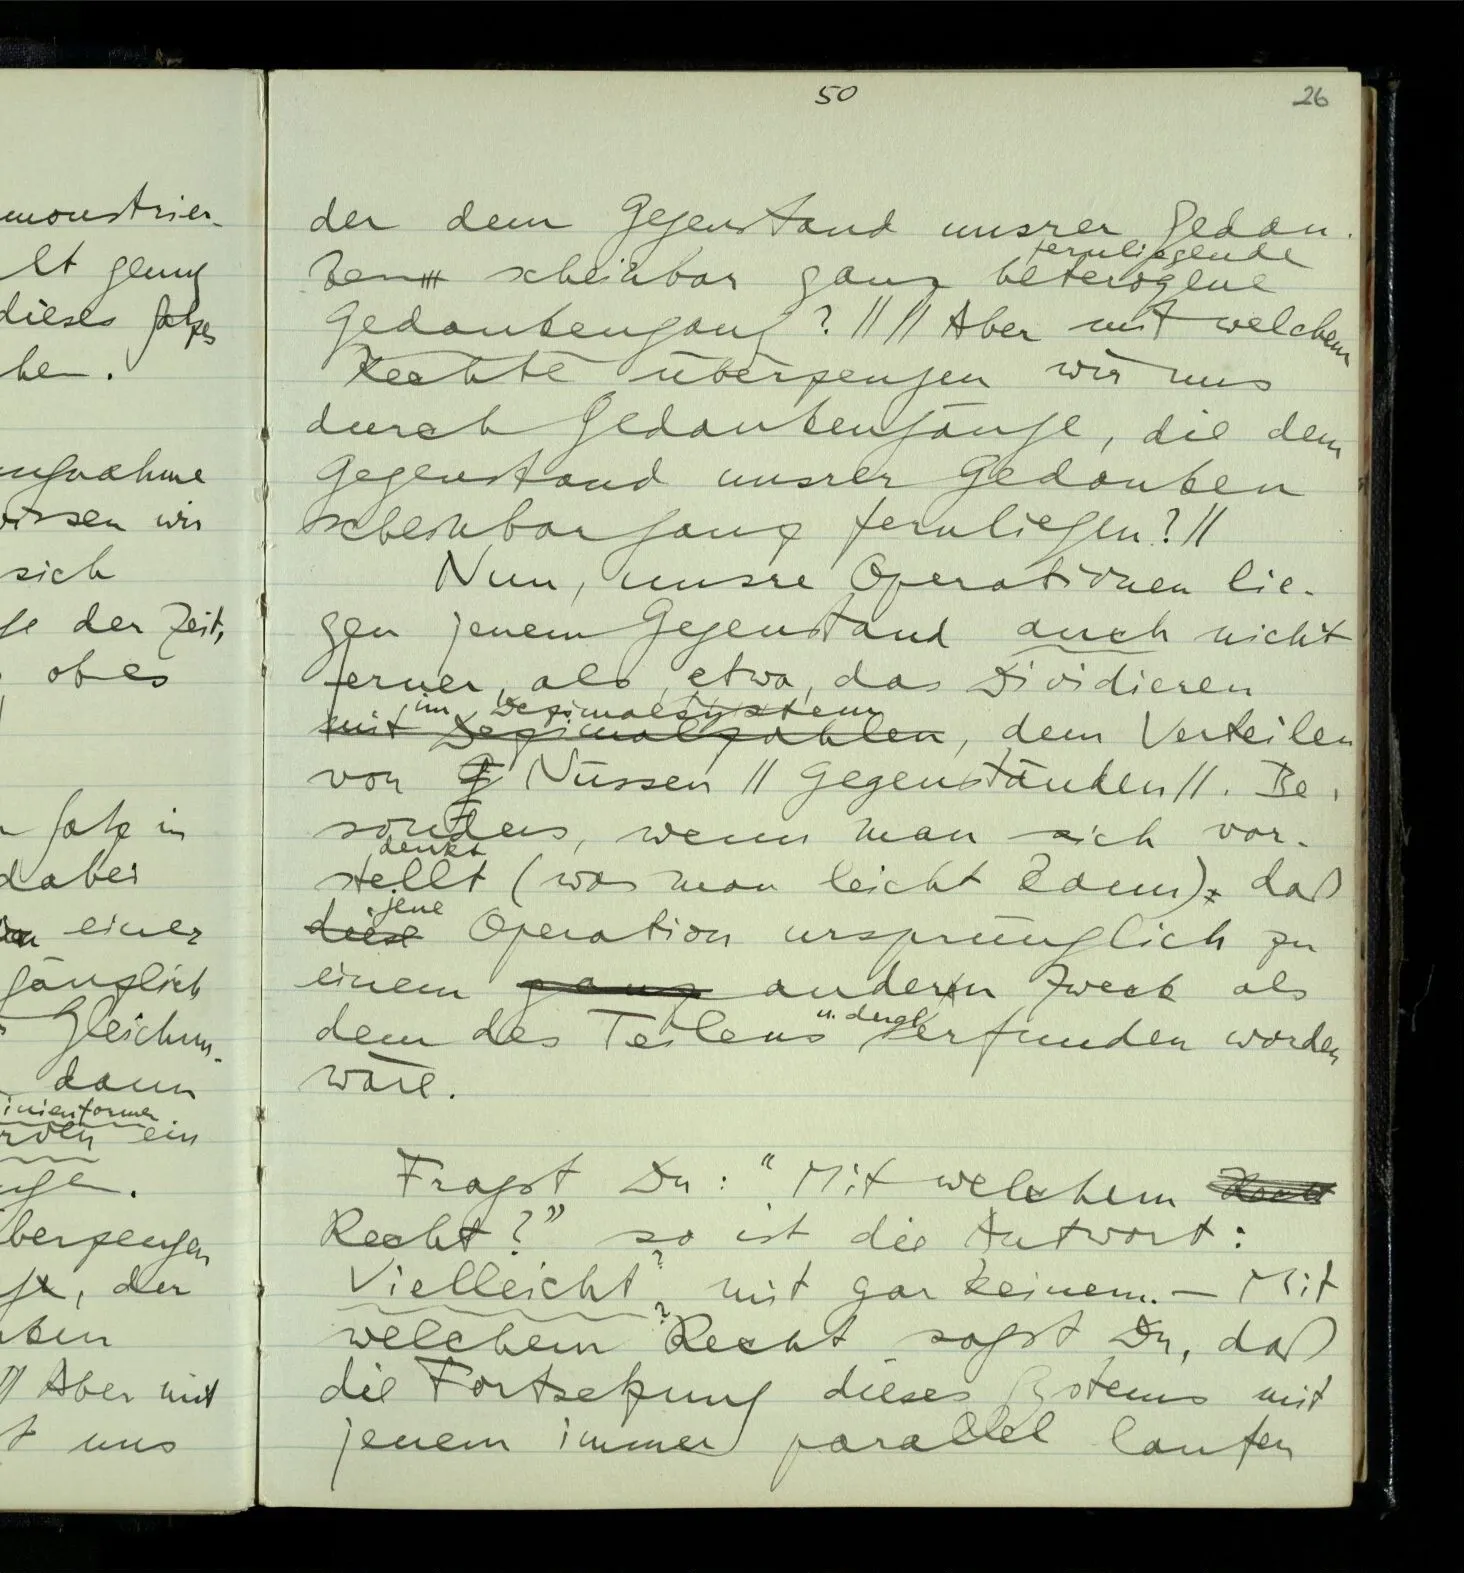 50
26
monstrier-
lt genug
dieses Satzes
he .
ngnahme
wissen wir
sich
ge der Zeit,
ob es
Satz in
dabei
einer
gänzlich
Gleichun-
dann
inienformer
ein
nge .
berzeugen
, der
nken
// Aber mit
t uns
der dem Gegenstand unsrer Gedan-
fernliegende
ken scheinbar ganz heterogene
Gedankengang ? // // Aber mit welchem
Rechte überzeugen wir uns
durch Gedankengänge, die dem
Gegenstand unsrer Gedanken
scheinbar ganz fernliegen? //
Nun, unsre Operationen lie-
gen jenem Gegenstand auch nicht
ferner, als, etwa, das Dividieren
im Dezimalsystem
mit Dezimalzahlen, dem Verteilen
von Nüssen // Gegenständen // . Be-
sonders, wenn man sich vor-
denkt
stellt (was man leicht kann), daß
jene
diese Operation ursprünglich zu
einem ganz andern Zweck als
u. dergl.
dem des Teilens erfunden worden
wäre.
Fragst Du : “ Mit welchem Recht
Recht ? ” so ist die Antwort :
Vielleicht mit gar keinem. — Mit
welchem Recht sagst Du, daß
die Fortsetzung dieses Systems mit
jenem immer parallel laufen